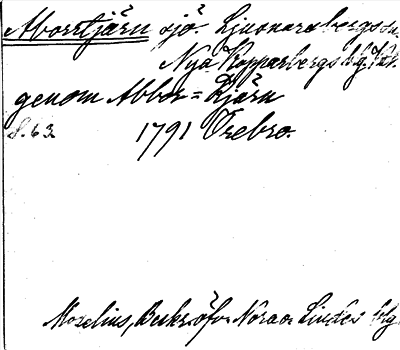 Aborrtjärn sjö. Ljusnarsbergs sn.
Nya Kopparbergs blg. Väst.
genom Abbor=Kjärn
S. 63. 1791 Örebro.
Moselius, Beskr. öfv. Nora o. Lindes blg.